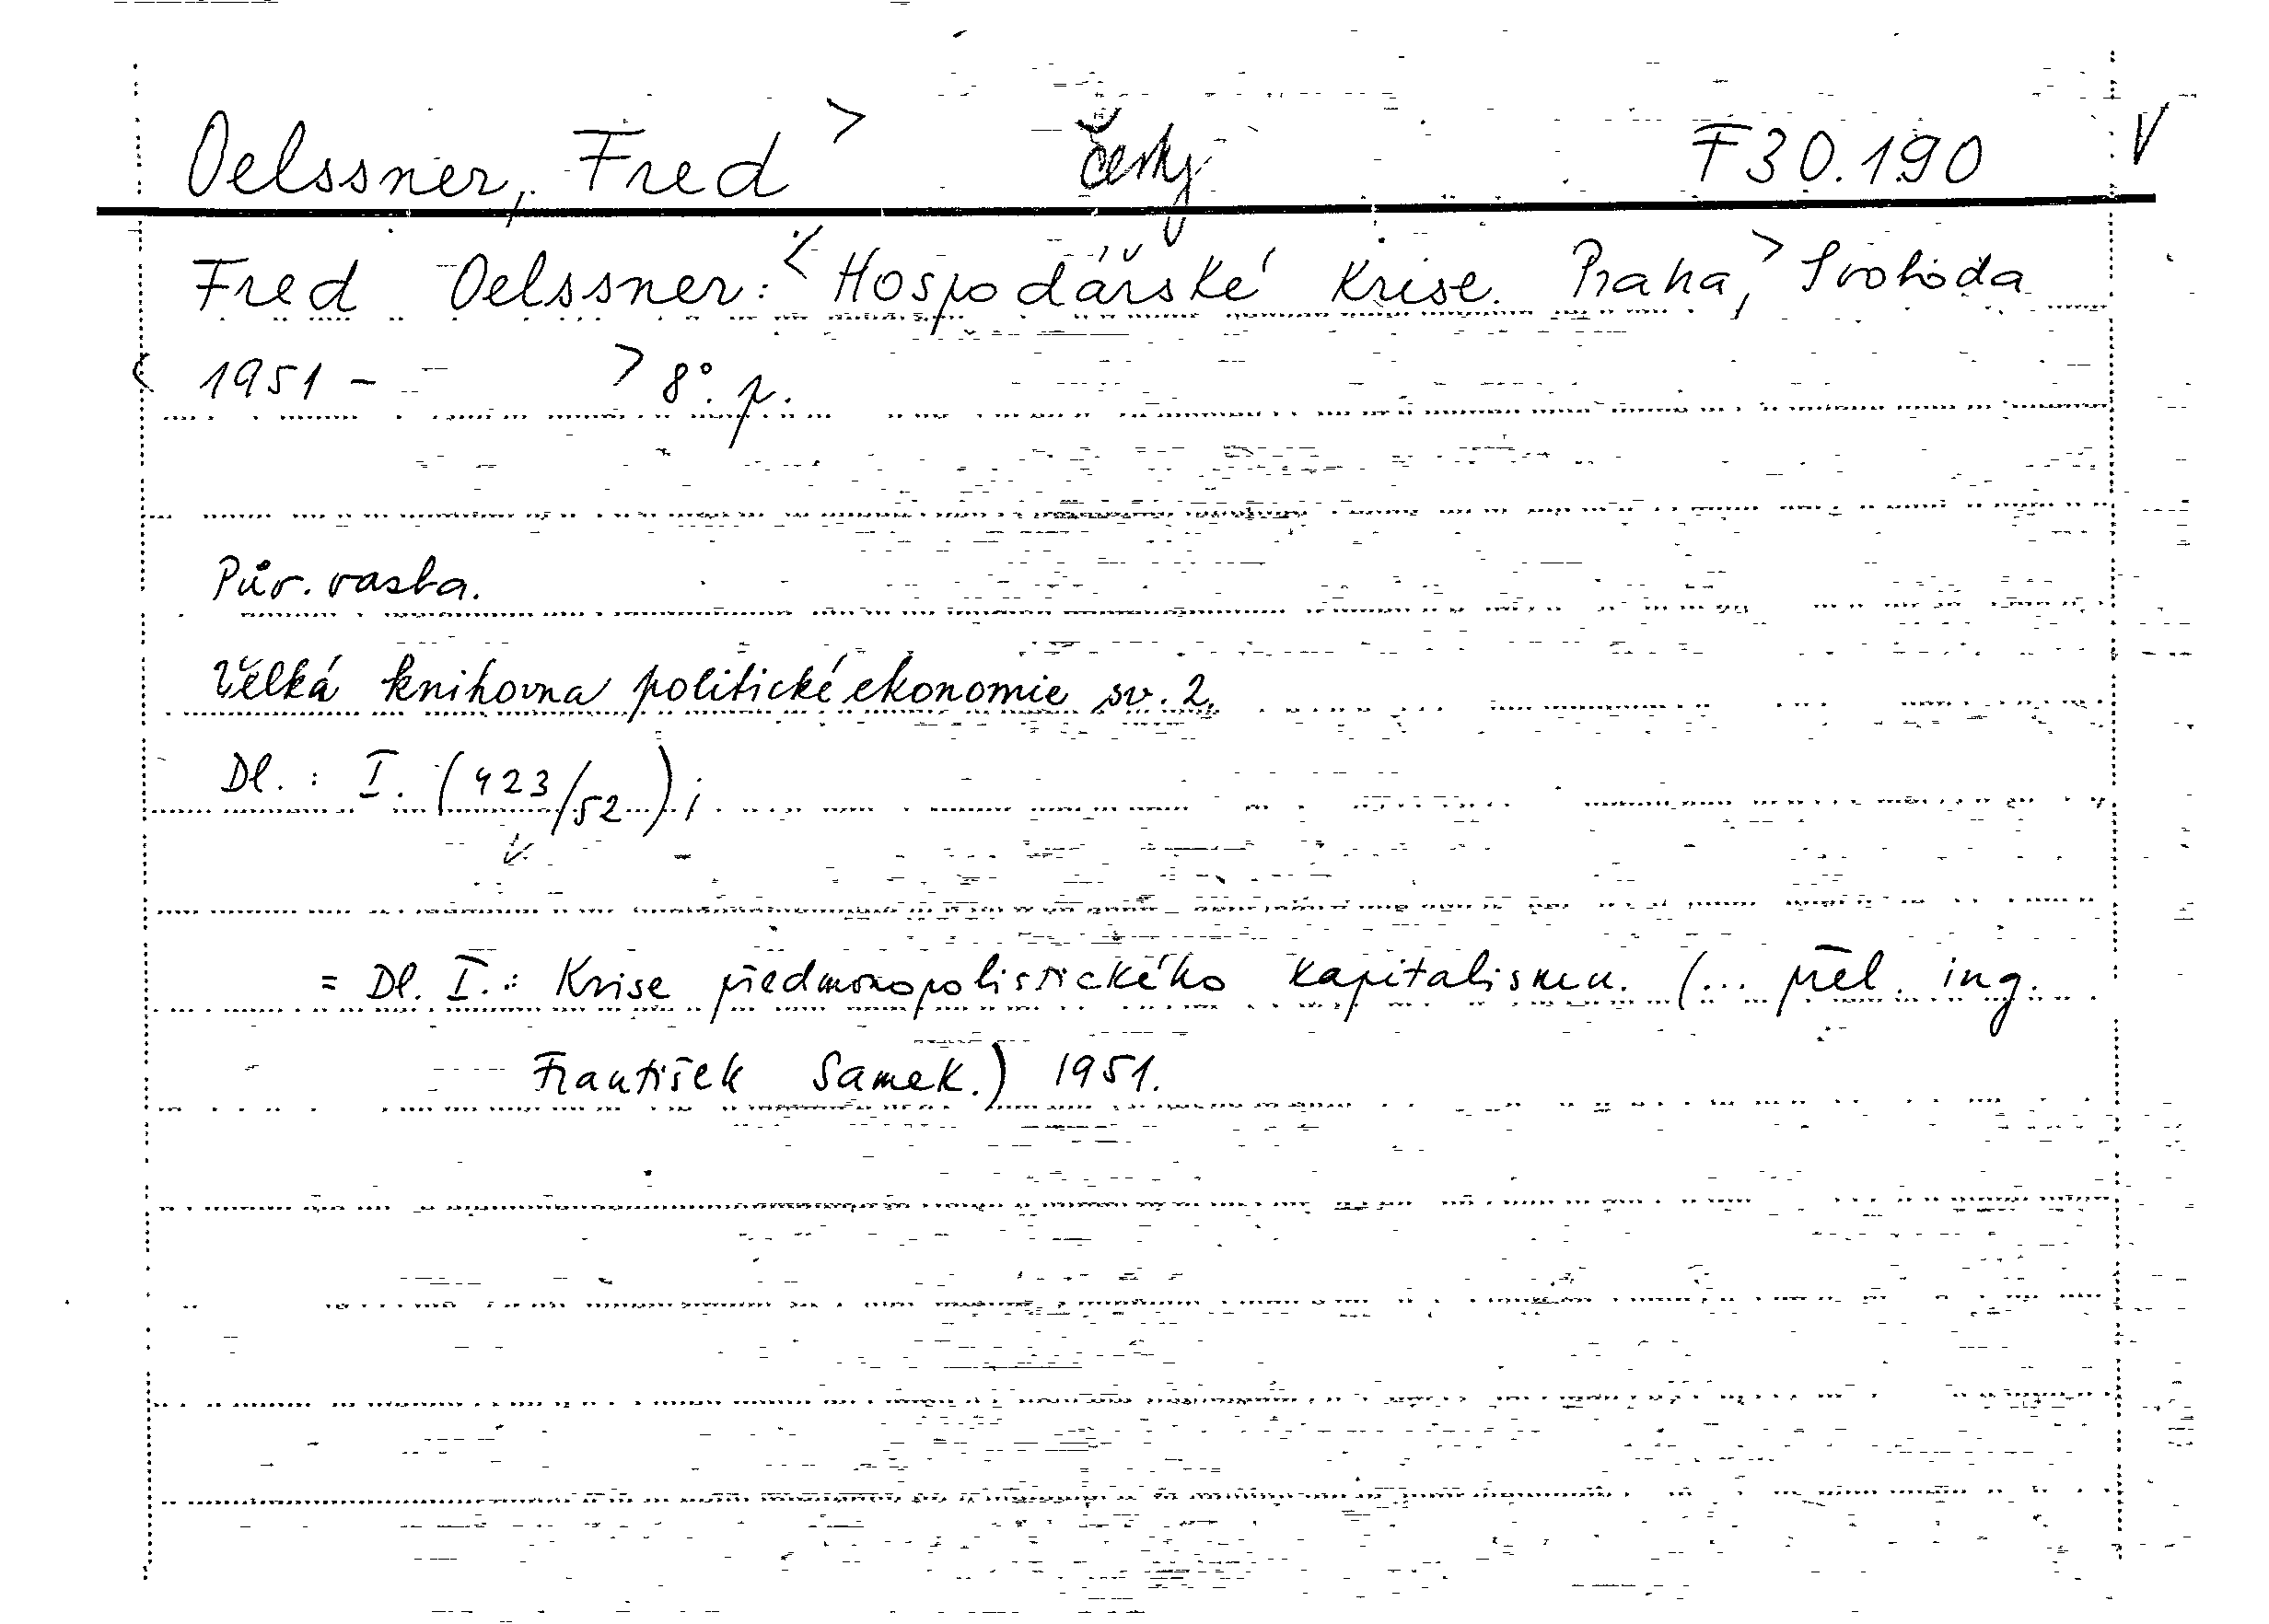 Oelssner, Fred > Česky F 30.190 V
Fred Oelssner: < Hospodářské krise. Praha, > Svoboda
< 1951 - > 8°. p.
Pův. vazba.
Velká knihovna politické ekonomie sv. 2.
Dl. : I. (423/52);
= Dl. I.: Krise předmonopolistického kapitalismu. (... přel. ing.
František Samek.) 1951.